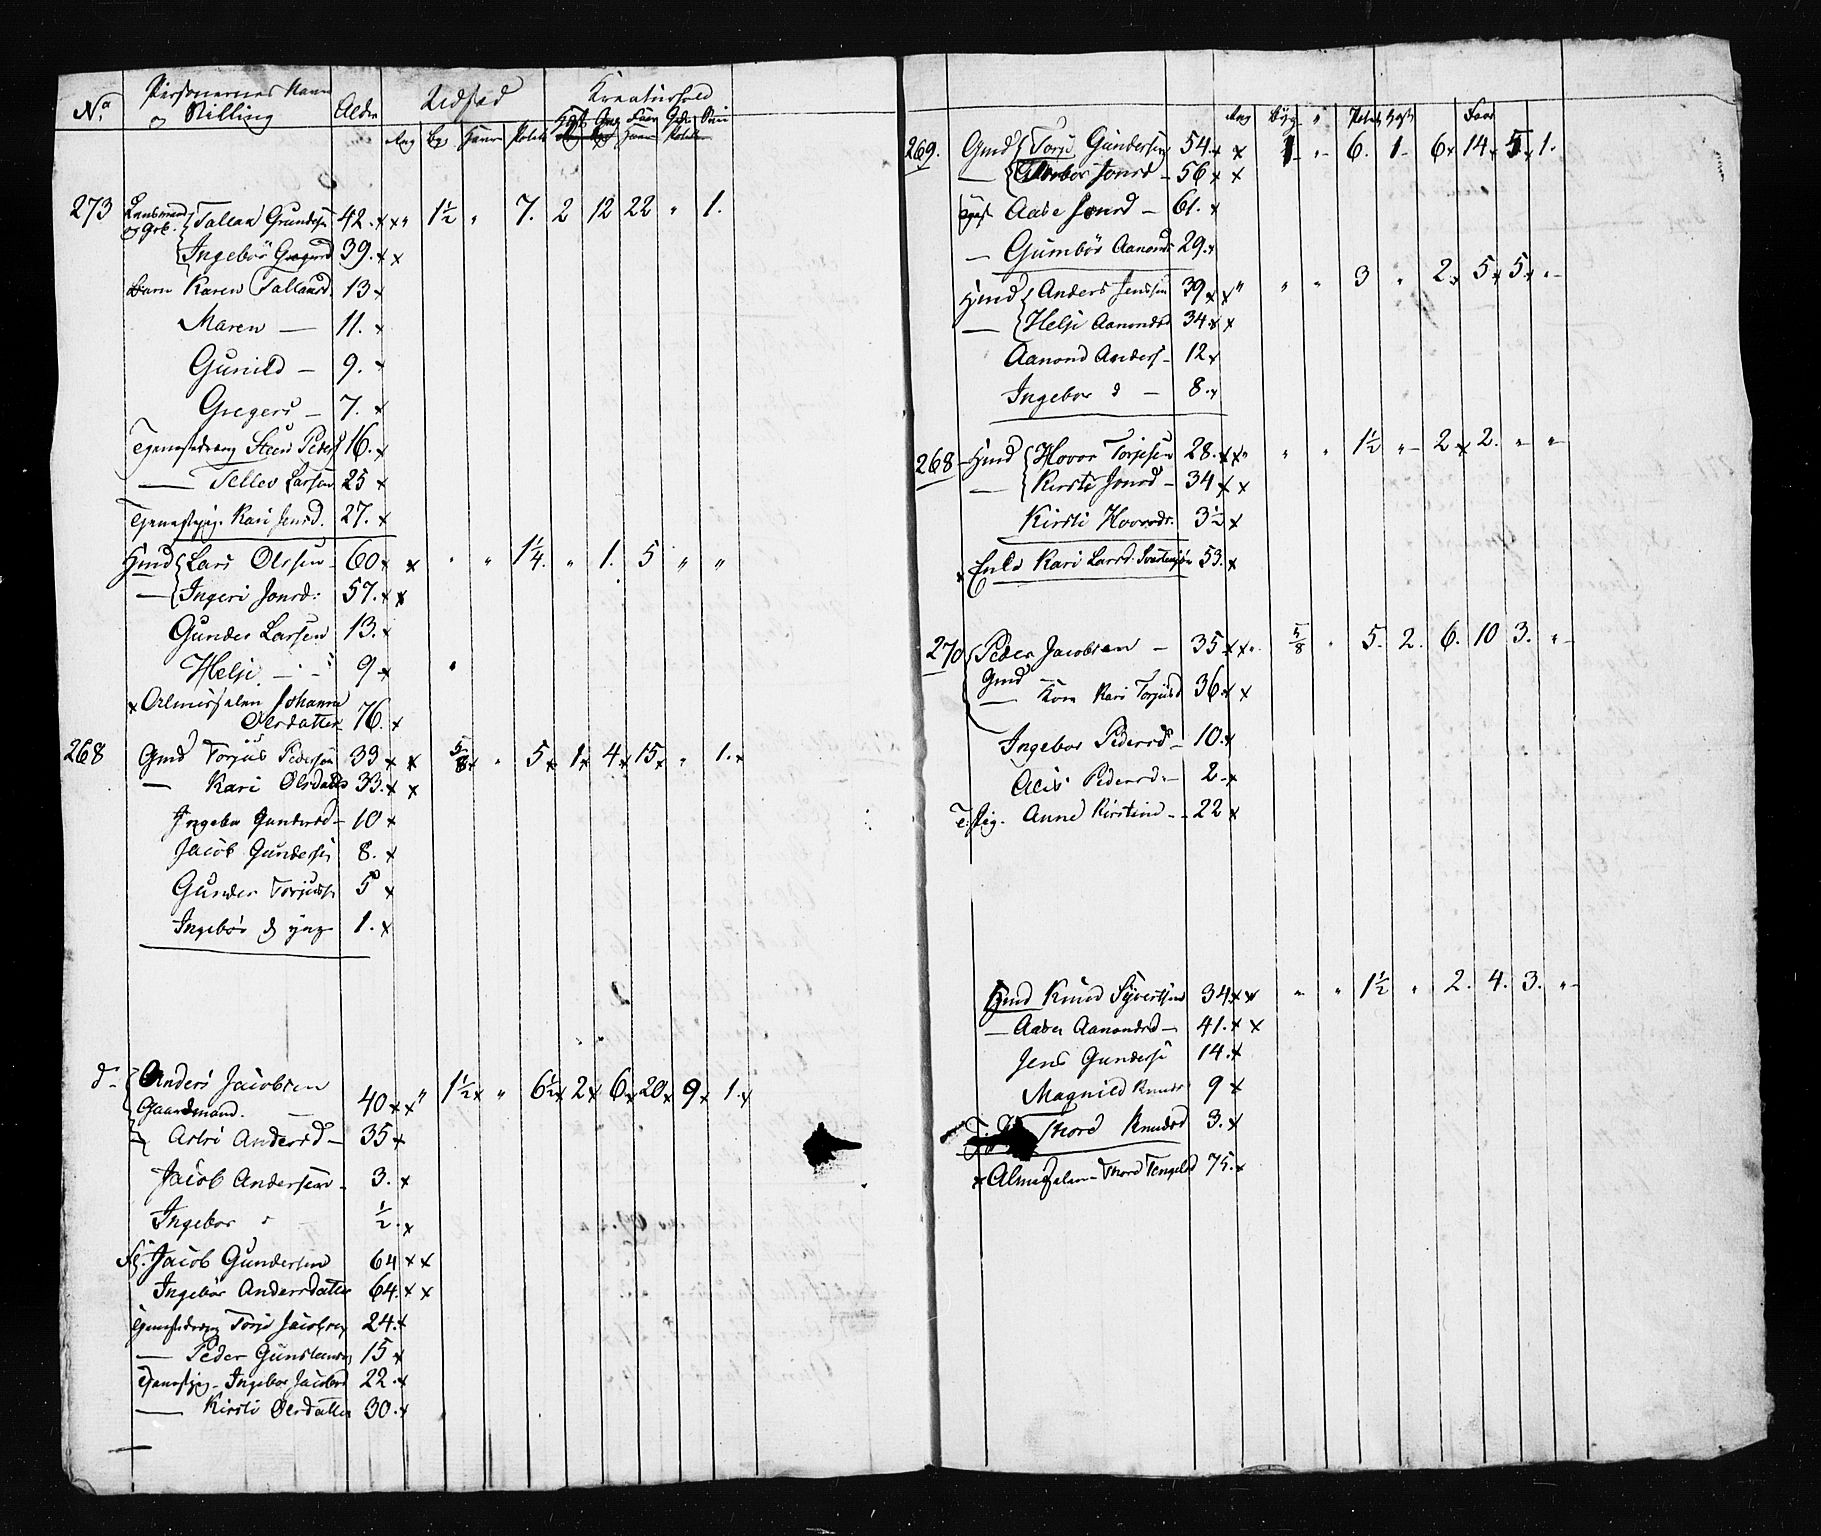 No. Personernes Navn og Stilling Alder Udsæd Kreaturhold
Rug Byg Havre Potet. Hest Sviin
273 Lensmand og Grb. Tallak Gundersen 42. x x " 1½ " 7. 2 12 22 " 1.
Ingebör Gregersd 39. x x
Barn Karen Tallaksd. 13 x
Maren — 11. x
Gunild — 9. x
Gregers — 7. x
Tjenestedreng Steen Peders 16. x
— Tellev Larsen 25 x
Tjenestpige Kari Jensd. 27. x
Hmd Lars Olssen 60 x x " " 1¼. " 1. 5 " "
— Ingeri Jonsd: 57. x x
Gunder Larsen 13. x
Helje — " 9 x
x Almisselem Johanne
Olsdatter 76. x
268 Gmd Torjus Pedersen 33 x x 5/8 x " 5 x 1 x 4 x 15 x " 1. x
— Kari Olsdatter 33. x x
Ingebor Gundersd — 10 x
Jacob Gundersen 8. x
Gunder Torjuss 5 x
Ingebör d yng 1. x
d — Anders Jacobsen
Gaardmand. — 40 x x " 1½ x " 6½ x 2 x 6 x 20 x 9 x 1. x
Aslri Andersd — 35 x
Jacob Andersen — 3. x
Ingebor " — ½. x
Jacob Gundersen 64 x x
Ingebör Andersdatter 64. x x
Tjenestedreng Torje Jacobsen 24. x
— Peder Gunstensen 15 x
Tjenestpig — Ingebor Jacobsd 22. x
— Kirsti Olsdatter 30. x
Rug Byg " Potet Hest Faar
269. Gmd Torje Gundersen 54. x x 1 " 6. 1 — 6 x 14 x 5 x 1.
— Jonsd — 56 x x
Aase Jonsd — 61. x
— Gumbör Aanonds 29. x
Hmd Anders Jenssen 39 x x " " " 3 " 2 x 5 x 5 x " —
— Helje Aanondsd 34. x x
Aanond Anders — 12 x
Ingebor d — 8. x
268 — Hmd Hovor Torjesen 28. x x " " " 1½ " — 2 x 2. " "
— Kirsti Jonsd — 34 x x
Kirsti Hovorsdr. 3½ x
x Enke Kari Larsd. 53. x
270 Peder Jacobsen — 35 x x " 5/8 " 5. 2. 6. 10 3. " —
Gmd — Kone Kari Torjusd 36. x x
Ingebor Pedersd — 10. x
Pedersd — 2 — x
T: Pig. Anne Kirstine — 22 x
Hmd Knud Syvertsen 34. x x " " 1½ " 2. 4. 3. " —
— Aase Aanondsd — 41. x x
Jens Gunderse 14. x
Magnild Knuds 9 x
Thore Knudsd 3. x
x Almisselem — Thore Tengelsd 75. x